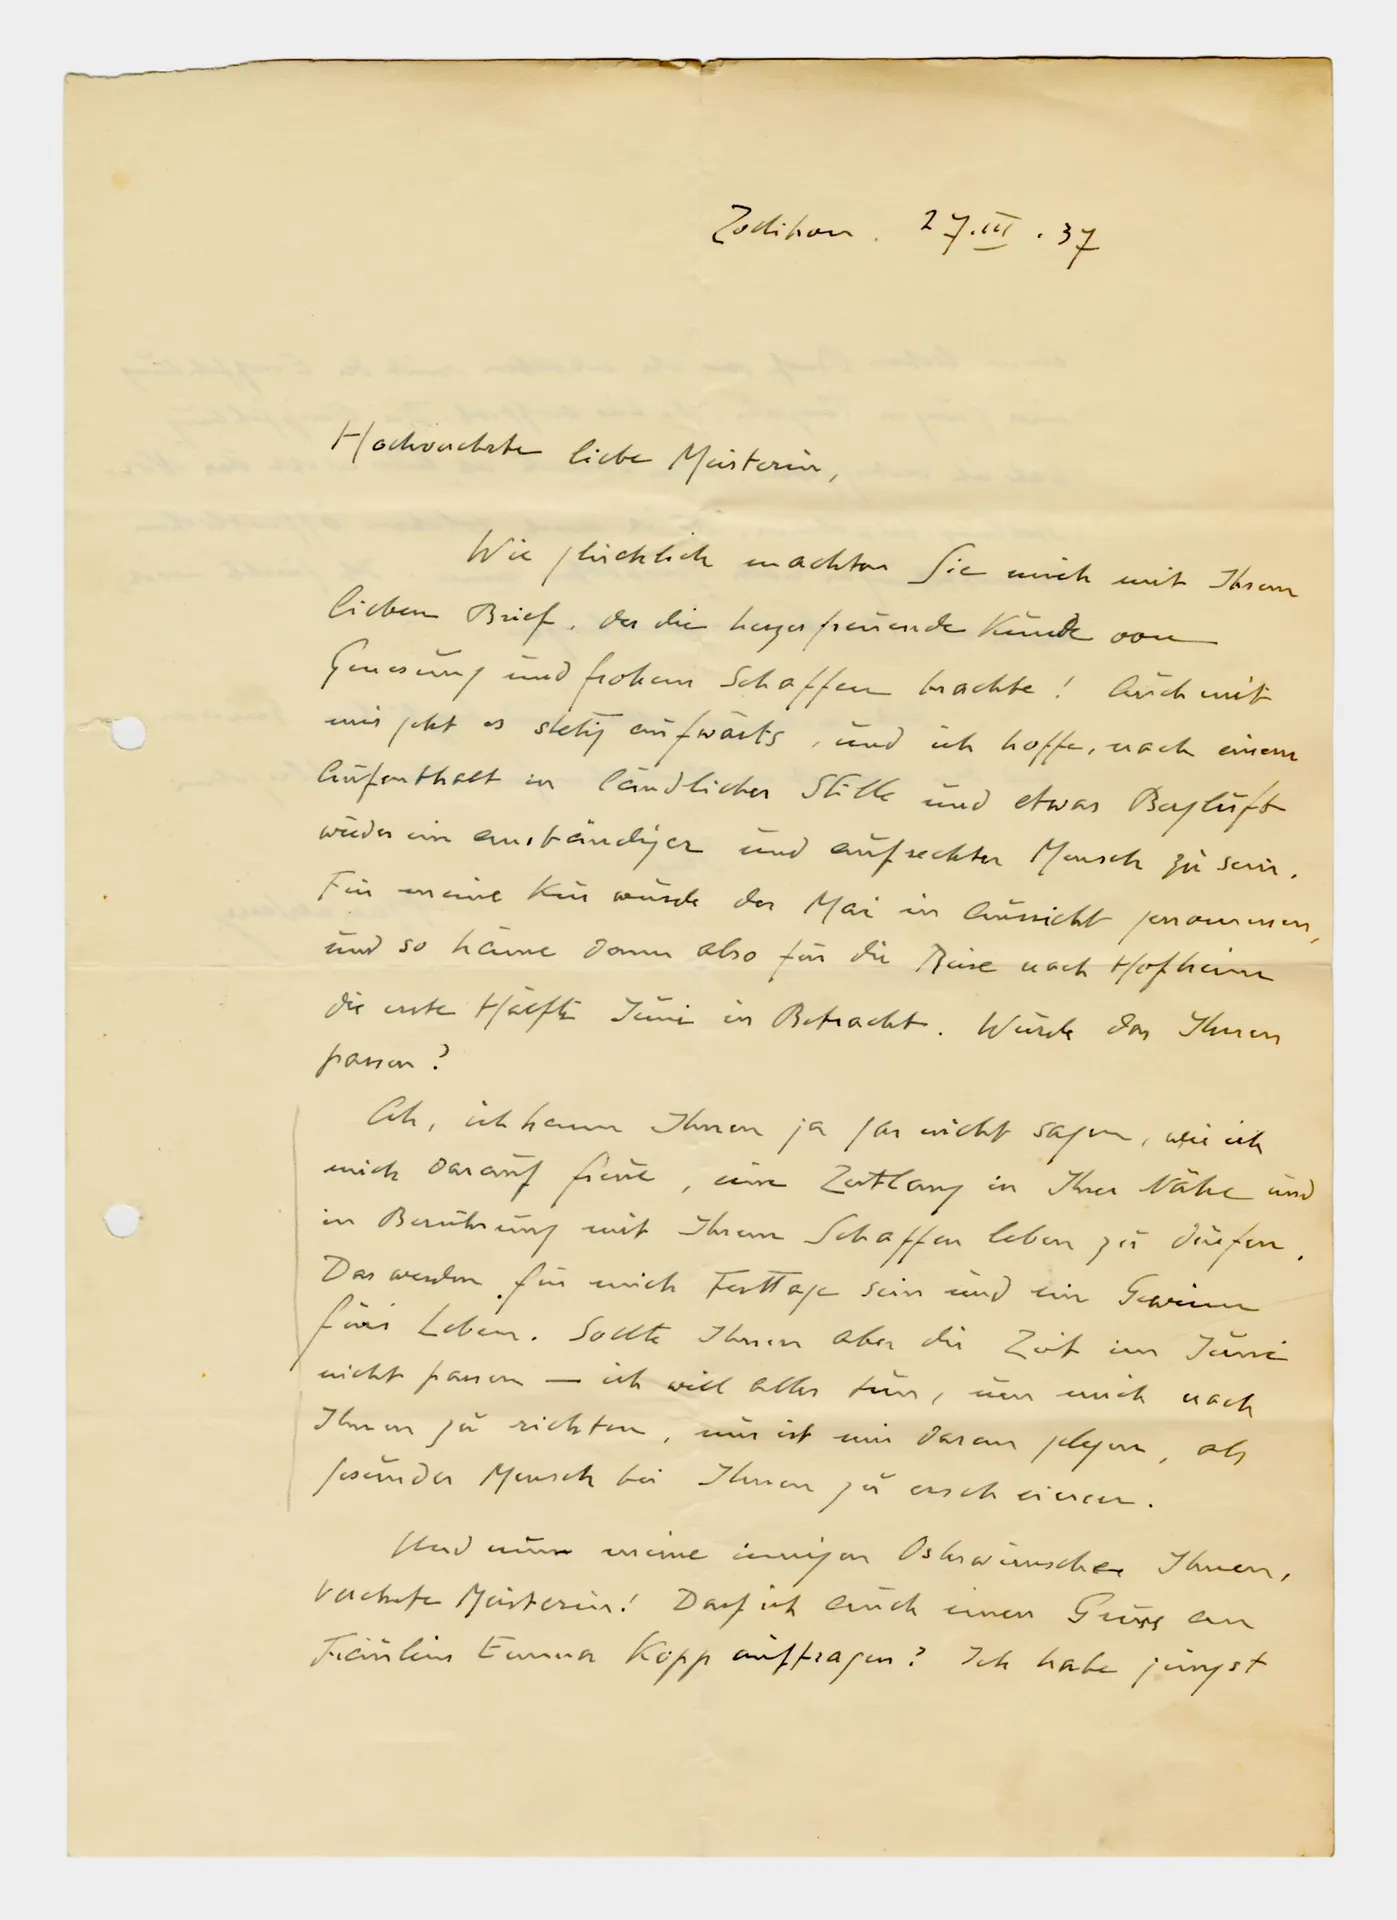 Zollikon. 27.III.37
Hochverehrte liebe Meisterin,
Wie glücklich machten Sie mich mit Ihrem
lieben Brief, der die herzerfreuende Kunde von
Genesung und frohem Schaffen brachte! Auch mit
mir geht es stetig aufwärts, und ich hoffe, nach einem
Aufenthalt in ländlicher Stille und etwas Bergluft
wieder ein anständiger und aufrechter Mensch zu sein.
Für meine Kur wurde der Mai in Aussicht genommen,
und so käme dann also für die Reise nach Hofheim
die erste Hälfte Juni in Betracht. Würde das Ihnen
passen?
Ach, ich kann Ihnen ja gar nicht sagen, wie ich
mich darauf freue, eine Zeitlang in Ihrer Nähe und
in Berührung mit Ihrem Schaffen leben zu dürfen.
Das werden für mich Festtage sein und ein Gewinn
fürs Leben. Sollte Ihnen aber die Zeit im Juni
nicht passen – ich will alles tun, um mich nach
Ihnen zu richten, nur ist mir daran gelegen, als
gesunder Mensch bei Ihnen zu erscheinen.
Und nun meine innigen Osterwünsche Ihnen,
verehrte Meisterin! Darf ich auch einen Gruss an
Fräulein Emma Kopp auftragen? Ich habe jüngst